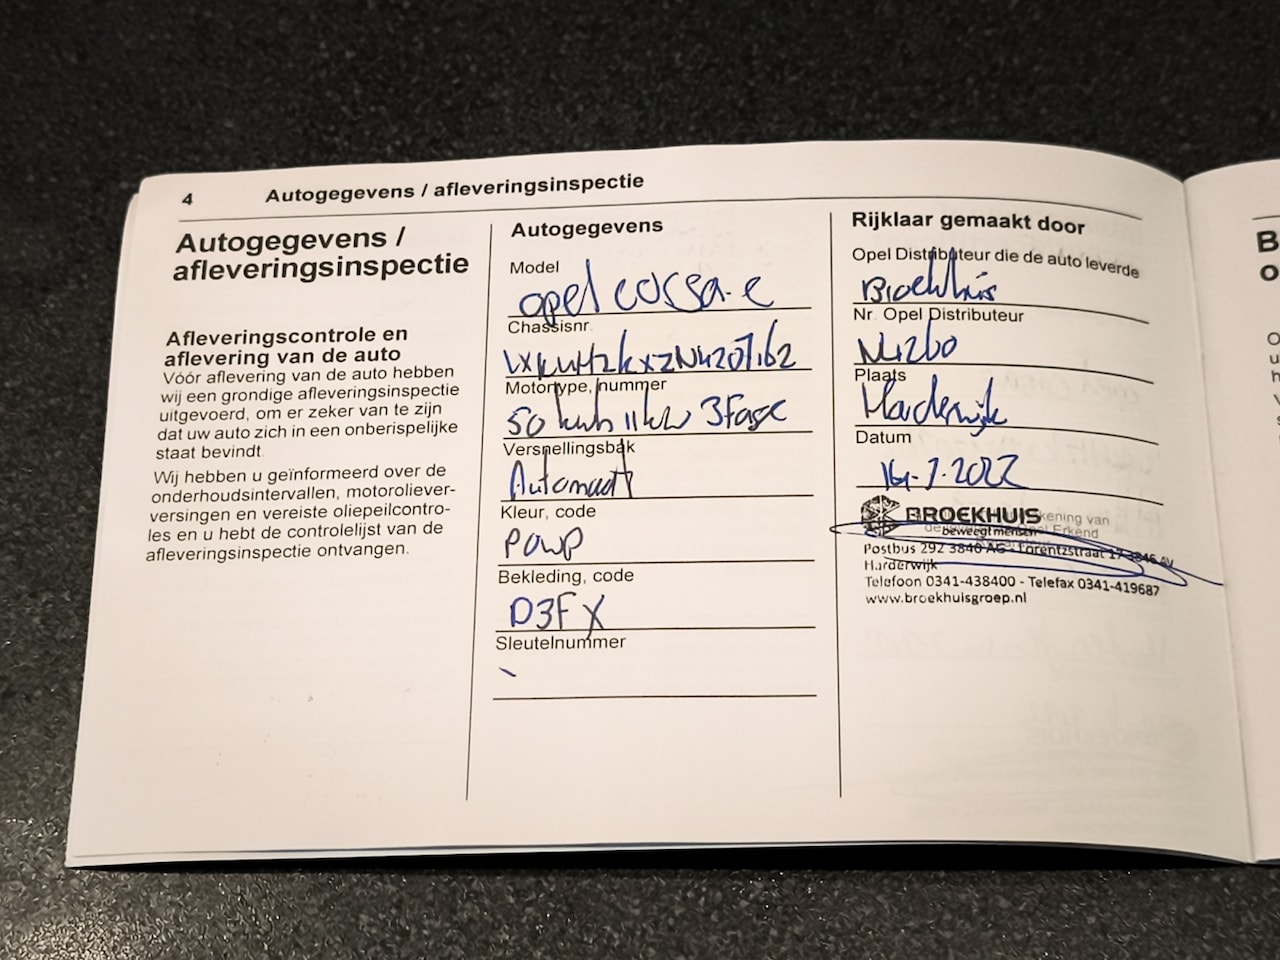 4
Autogegevens / afleveringsinspectie
Autogegevens /
afleveringsinspectie
Afleveringscontrole en
aflevering van de auto
Vóór aflevering van de auto hebben
wij een grondige afleveringsinspectie
uitgevoerd, om er zeker van te zijn
dat uw auto zich in een onberispelijke
staat bevindt.
Wij hebben u geïnformeerd over de
onderhoudsintervallen, motoroliever-
versingen en vereiste oliepeilcontro-
les en u hebt de controlelijst van de
afleveringsinspectie ontvangen.
Autogegevens
Model
Opel corsa-e
Chassisnr.
Motortype, nummer
50 kwh 11kw 3Fase
Versnellingsbak
Automaat
Kleur, code
POWP
Bekleding, code
D3FX
Sleutelnummer
Rijklaar gemaakt door
Opel Distributeur die de auto leverde
Broekhuis
Nr. Opel Distributeur
Plaats
Harderwijk
Datum
2022
BROEKHUIS
kening van
beweegt mensen
Erkend
Postbus 292 3840 AG - Lorentzstraat 17 3846 AV
Harderwijk
Telefoon 0341-438400 - Telefax 0341-419687
www.broekhuisgroep.nl
B
o